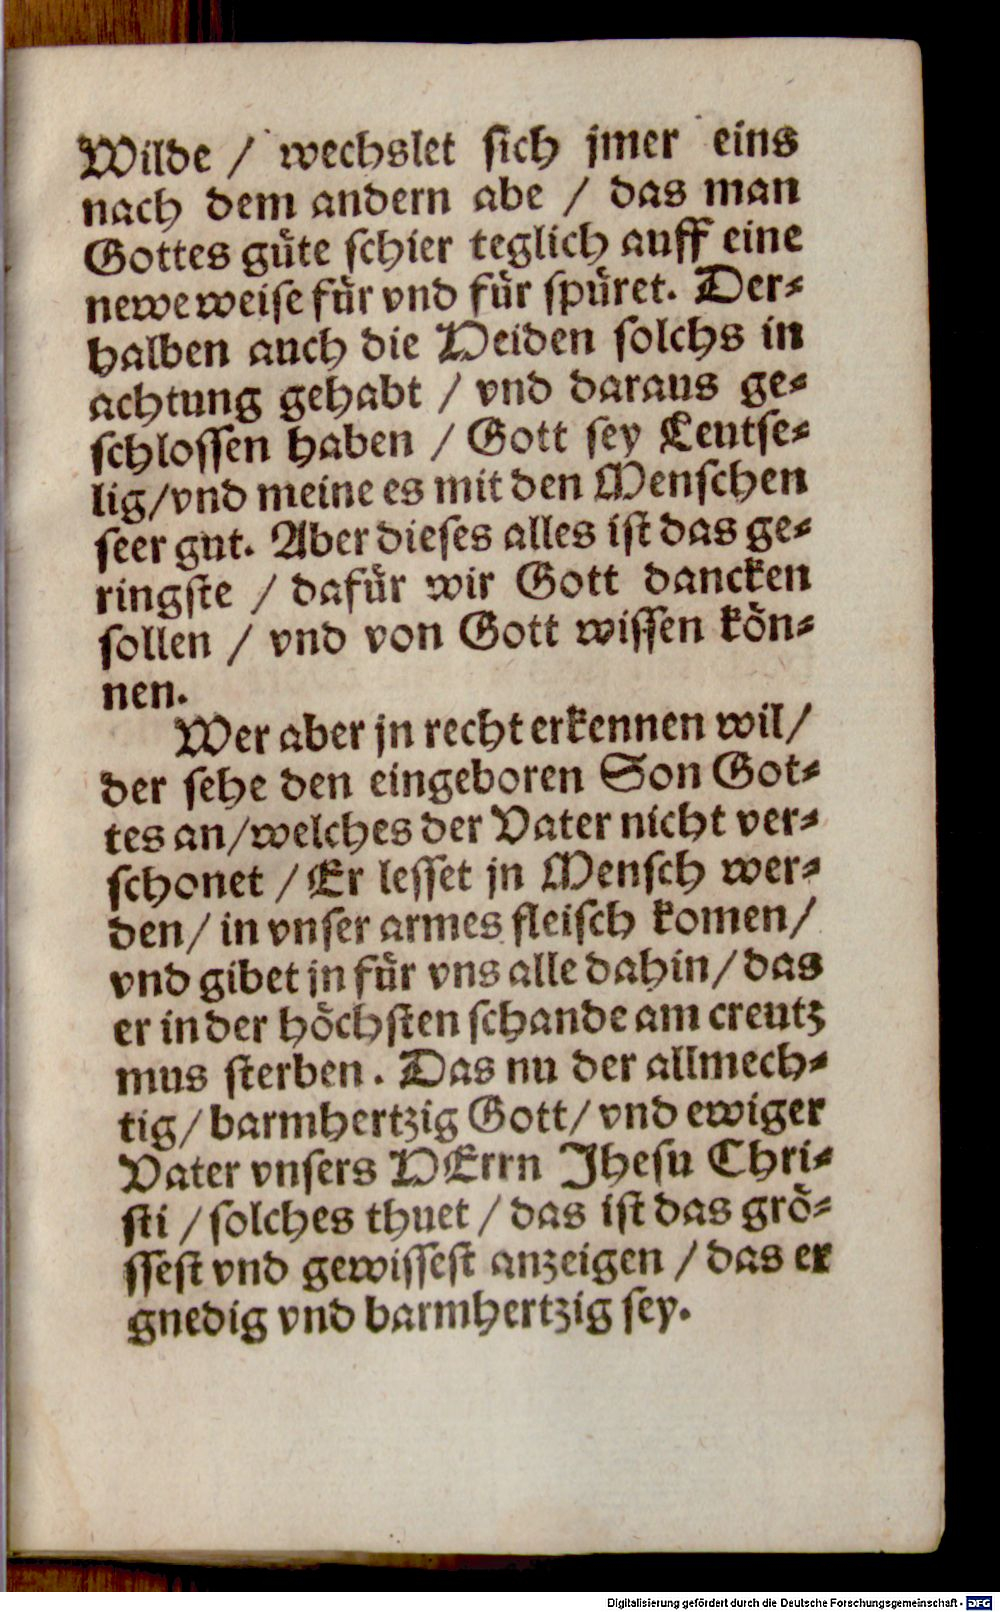 Wilde / wechslet sich jmer eins
nach dem andern abe / das man
Gottes güte schier teglich auff eine
newe weise für vnd für spüret. Der-
halben auch die Heiden solchs in
achtung gehabt / vnd daraus ge-
schlossen haben / Gott sey Leutse-
lig/vnd meine es mit den Menschen
seer gut. Aber dieses alles ist das ge-
ringste / dafür wir Gott dancken
sollen / vnd von Gott wissen kön-
nen.
Wer aber jn recht erkennen wil/
der sehe den eingeboren Son Got-
tes an/welches der Vater nicht ver-
schonet / Er lesset jn Mensch wer-
den/ in vnser armes fleisch komen/
vnd gibet jn für vns alle dahin/ das
er in der höchsten schande am creutz
mus sterben. Das nu der allmech-
tig/ barmhertzig Gott/ vnd ewiger
Vater vnsers HErrn Jhesu Chri-
sti / solches thuet / das ist das grö-
ssest vnd gewissest anzeigen / das er
gnedig vnd barmhertzig sey.
Digitalisierung gefördert durch die Deutsche Forschungsgemeinschaft - DFG